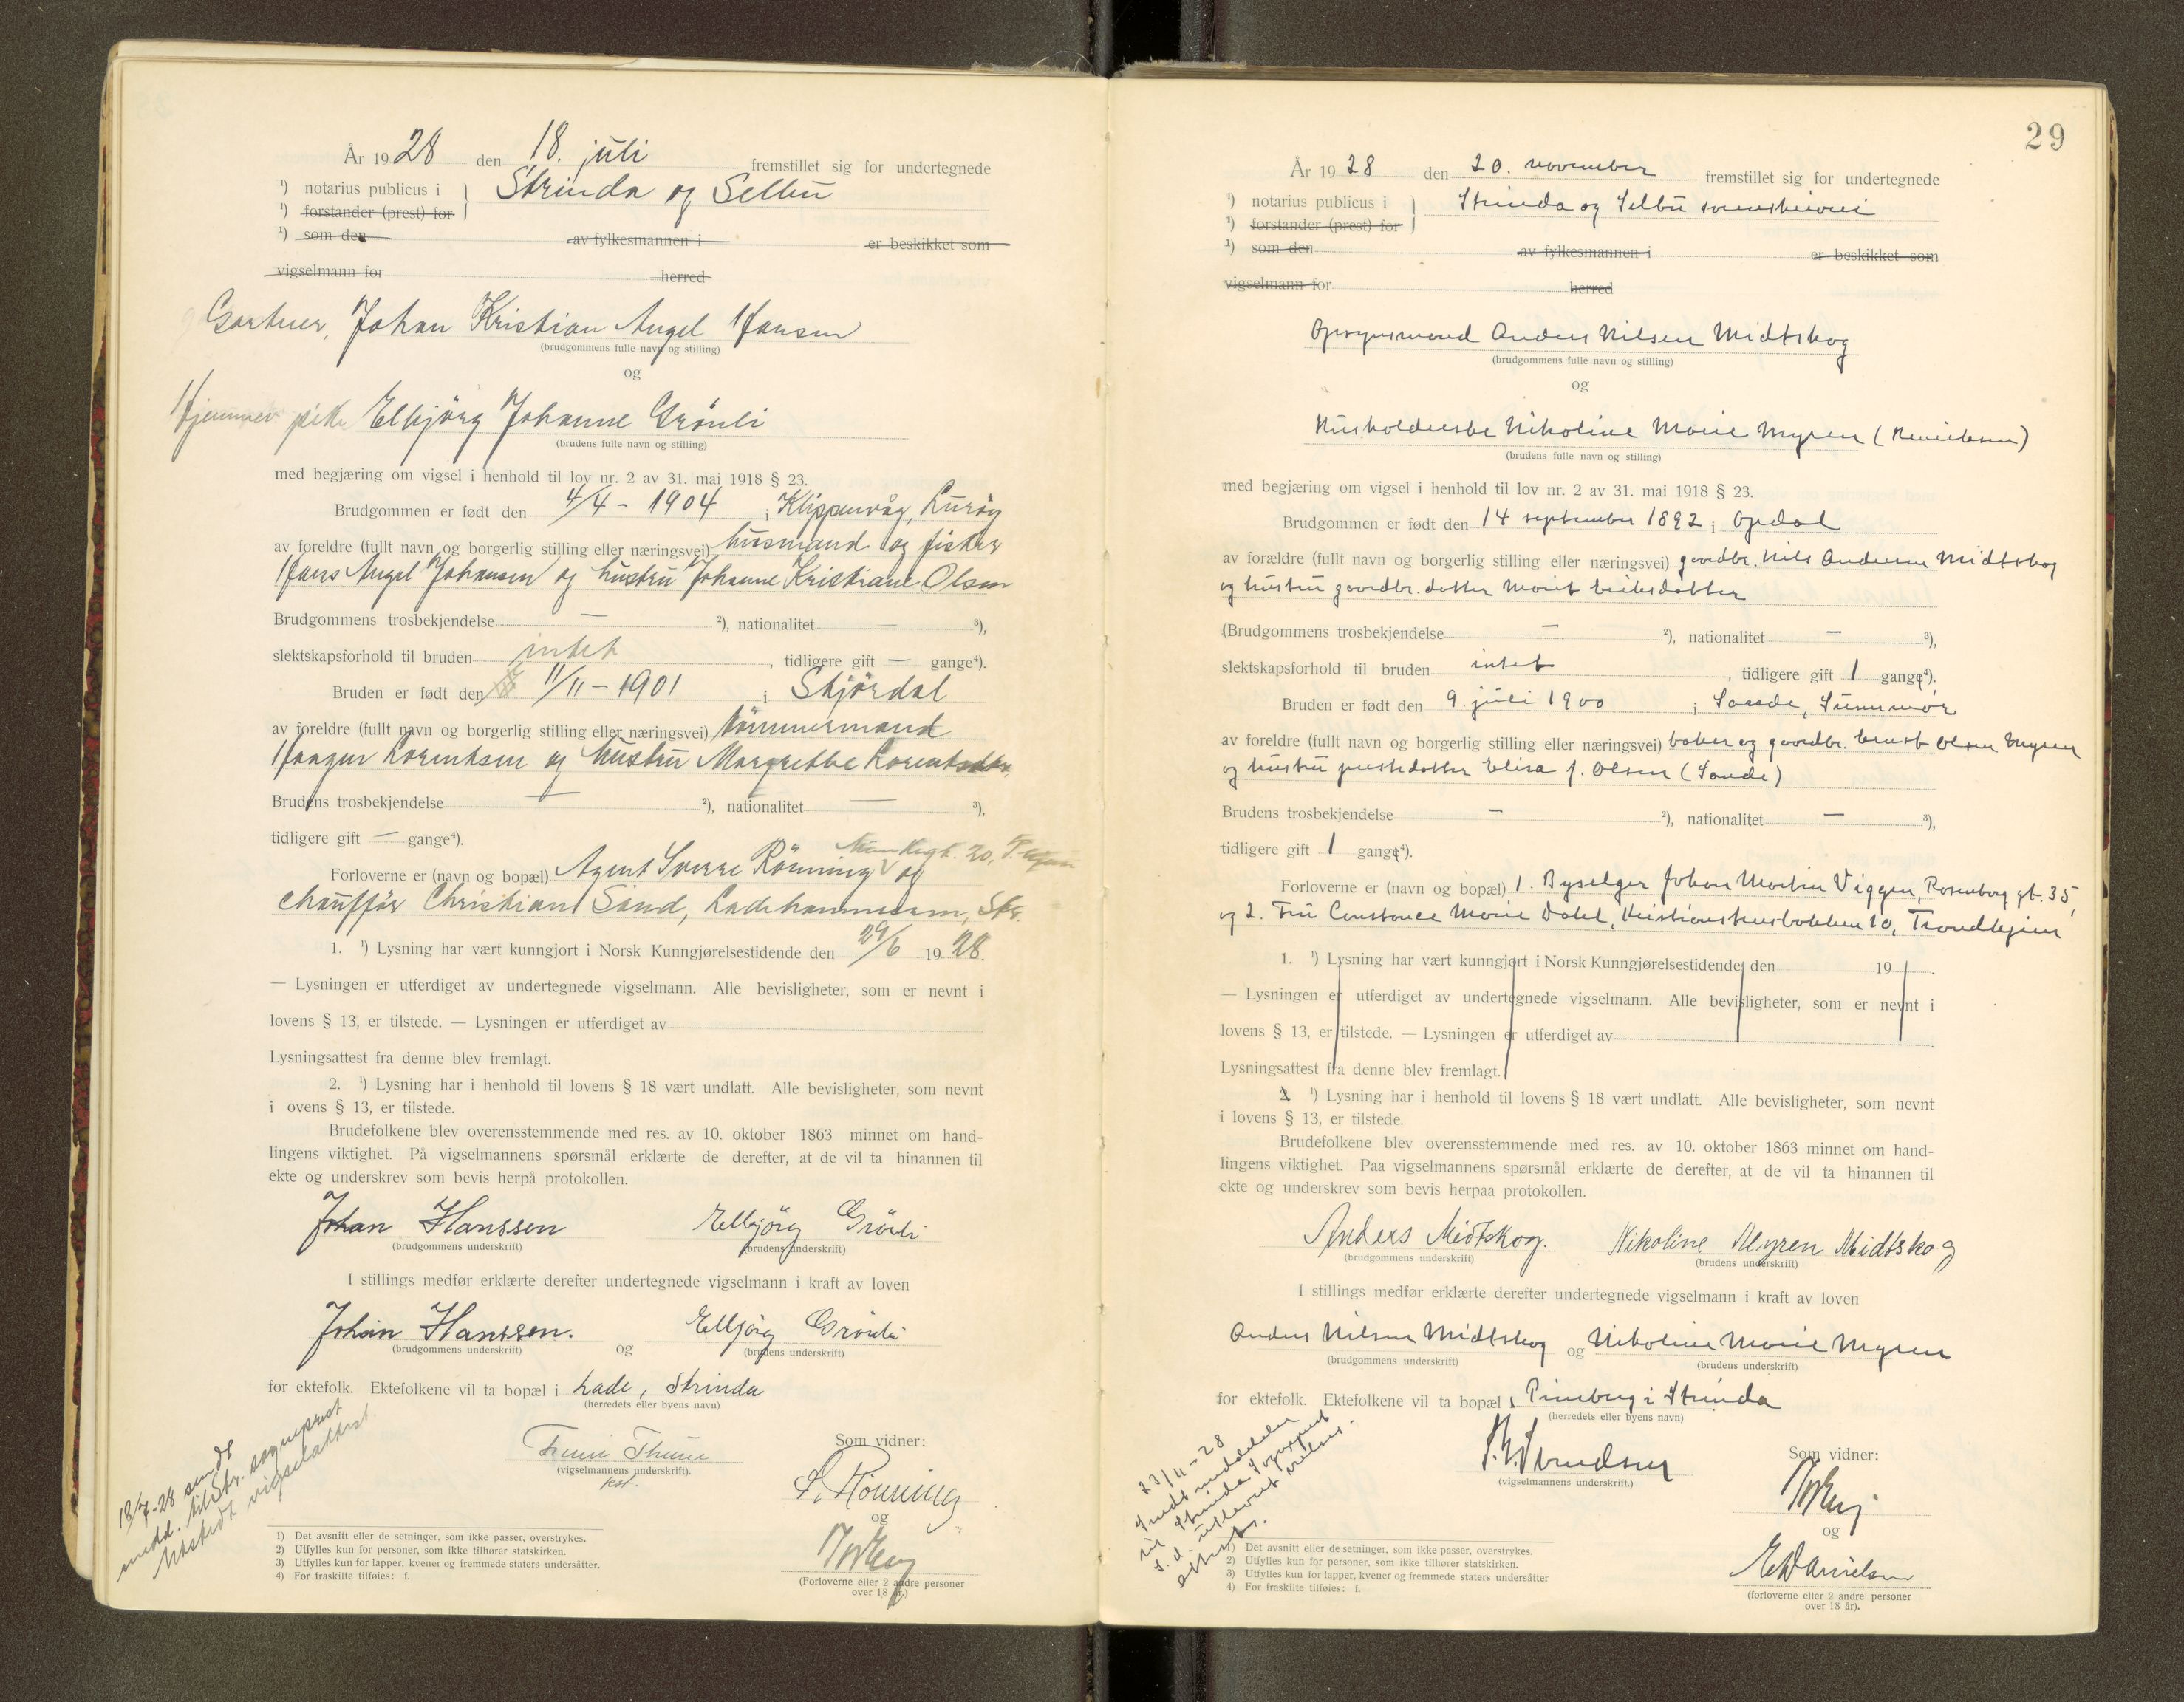 År 1928 den 18. juli fremstillet sig for undertegnede
¹) notarius publicus i Strinda og Selbu
¹) forstander (prest) for
¹) som den av fylkesmannen i er beskikket som
vigselmann for herred
Gartner, Johan Kristian Angel Hansen
(brudgommens fulle navn og stilling)
og
Hjemmev. pike Elbjörg Johanne Grönli
(brudens fulle navn og stilling)
med begjæring om vigsel i henhold til lov nr. 2 av 31. mai 1918 § 23.
Brudgommen er født den 4/4 - 1904 i Klippenvåg, Luröy
av foreldre (fullt navn og borgerlig stilling eller næringsvei) husmand og fisker
Hans Angel Johansen og hustru Johanne Kristiane Olsen
Brudgommens trosbekjendelse — ²), nationalitet — ³),
slektskapsforhold til bruden intet, tidligere gift — gange⁴).
Bruden er født den 11/11 - 1901 i Skjördal
av foreldre (fullt navn og borgerlig stilling eller næringsvei) tömmermand
Haagen Lorentsen og hustru Margrethe Lorentsdtr.
Brudens trosbekjendelse — ²), nationalitet — ³),
tidligere gift — gange⁴).
Munkegt. 20, T.hjem
Forloverne er (navn og bopæl) Agent Sverre Rönning og
chaufför Christian Sand, Ladehammeren, Str.
1. ¹) Lysning har vært kunngjort i Norsk Kunngjørelsestidende den 29/6 1928.
— Lysningen er utferdiget av undertegnede vigselmann. Alle bevisligheter, som er nevnt i
lovens § 13, er tilstede. — Lysningen er utferdiget av
Lysningsattest fra denne blev fremlagt.
2. ¹) Lysning har i henhold til lovens § 18 vært undlatt. Alle bevisligheter, som nevnt
i ovens § 13, er tilstede.
Brudefolkene blev overensstemmende med res. av 10. oktober 1863 minnet om hand-
lingens viktighet. På vigselmannens spørsmål erklærte de derefter, at de vil ta hinannen til
ekte og underskrev som bevis herpå protokollen.
Johan Hanssen Elbjörg Grönli
(brudgommens underskrift) (brudens underskrift)
I stillings medfør erklærte derefter undertegnede vigselmann i kraft av loven
Johan Hanssen. og Elbjörg Grönli
(brudgommens underskrift) (brudens underskrift)
for ektefolk. Ektefolkene vil ta bopæl i Lade, Strinda
(herredets eller byens navn)
18/7-28 sendt
medd. til Str. sogneprest
Utstedt vigselattest
Thune
(vigselmannens underskrift).
kst.
Som vidner:
S. Rönning
og
(Forloverne eller 2 andre personer
over 18 år.)
1) Det avsnitt eller de setninger, som ikke passer, overstrykes.
2) Utfylles kun for personer, som ikke tilhører statskirken.
3) Utfylles kun for lapper, kvener og fremmede staters undersåtter.
4) For fraskilte tilføies: f.
29
År 1928 den 20. november fremstillet sig for undertegnede
¹) notarius publicus i Strinda og Selbu sorenskriveri
¹) forstander (prest) for
¹) som den av fylkesmannen i er beskikket som
vigselmann for herred
Opsynsmand Anders Nilsen Midtskog
(brudgommens fulle navn og stilling)
og
Husholderske Nikoline Marie Myren (Henriksen)
(brudens fulle navn og stilling)
med begjæring om vigsel i henhold til lov nr. 2 av 31. mai 1918 § 23.
Brudgommen er født den 14 september 1892 i Opdal
av forældre (fullt navn og borgerlig stilling eller næringsvei) gaardbr. Nils Andersen Midtskog
og hustru gaardbr. datter Marit Eriksdatter
(Brudgommens trosbekjendelse — ²), nationalitet — ³),
slektskapsforhold til bruden intet, tidligere gift 1 gang⁴).
Bruden er født den 9. juli 1900 i Sande, Sunnmør
av foreldre (fullt navn og borgerlig stilling eller næringsvei) baker og gaardbr. Ernst Olsen Myren
og hustru prestedatter Elisa f. Olsen (Sande)
Brudens trosbekjendelse — ²), nationalitet — ³),
tidligere gift 1 gang⁴).
Forloverne er (navn og bopæl) 1. Byselger Johan Martin Viggen, Rosenborg gt. 35,
og 2. Fru Constance Marie Dahl, Kristianstensbakken 10, Trondhjem
1. ¹) Lysning har vært kunngjort i Norsk Kunngjørelsestidende den 19 .
— Lysningen er utferdiget av undertegnede vigselmann. Alle bevisligheter, som er nevnt i
lovens § 13, er tilstede. — Lysningen er utferdiget av
Lysningsattest fra denne blev fremlagt.
2 ¹) Lysning har i henhold til lovens § 18 vært undlatt. Alle bevisligheter, som nevnt
i lovens § 13, er tilstede.
Brudefolkene blev overensstemmende med res. av 10. oktober 1863 minnet om hand-
lingens viktighet. Paa vigselmannens spørsmål erklærte de derefter, at de vil ta hinannen til
ekte og underskrev som bevis herpaa protokollen.
Anders Midtskog. Nikoline Myren Midtskog
(brudgommens underskrift) (brudens underskrift)
I stillings medfør erklærte derefter undertegnede vigselmann i kraft av loven
Anders Nilsen Midtskog og Nikoline Marie Myren
(brudgommens underskrift) (brudens underskrift)
for ektefolk. Ektefolkene vil ta bopæl i Pineberg i Strinda
(herredets eller byens navn)
23/11-28
Sendt meddelelse
til Strinda Sogneprest
S. d. utlevert vielses-
attest.
(vigselmannens underskrift.)
Som vidner:
og
E. Danielsen
(forloverne eller 2 andre personer
over 18 år).
1) Det avsnitt eller de setninger, som ikke passer, overstrykes.
2) Utfylles kun for personer, som ikke tilhører statskirken.
3) Utfylles kun for lapper, kvener og fremmede staters undersåtter
4) For fraskilte tilføies: f.